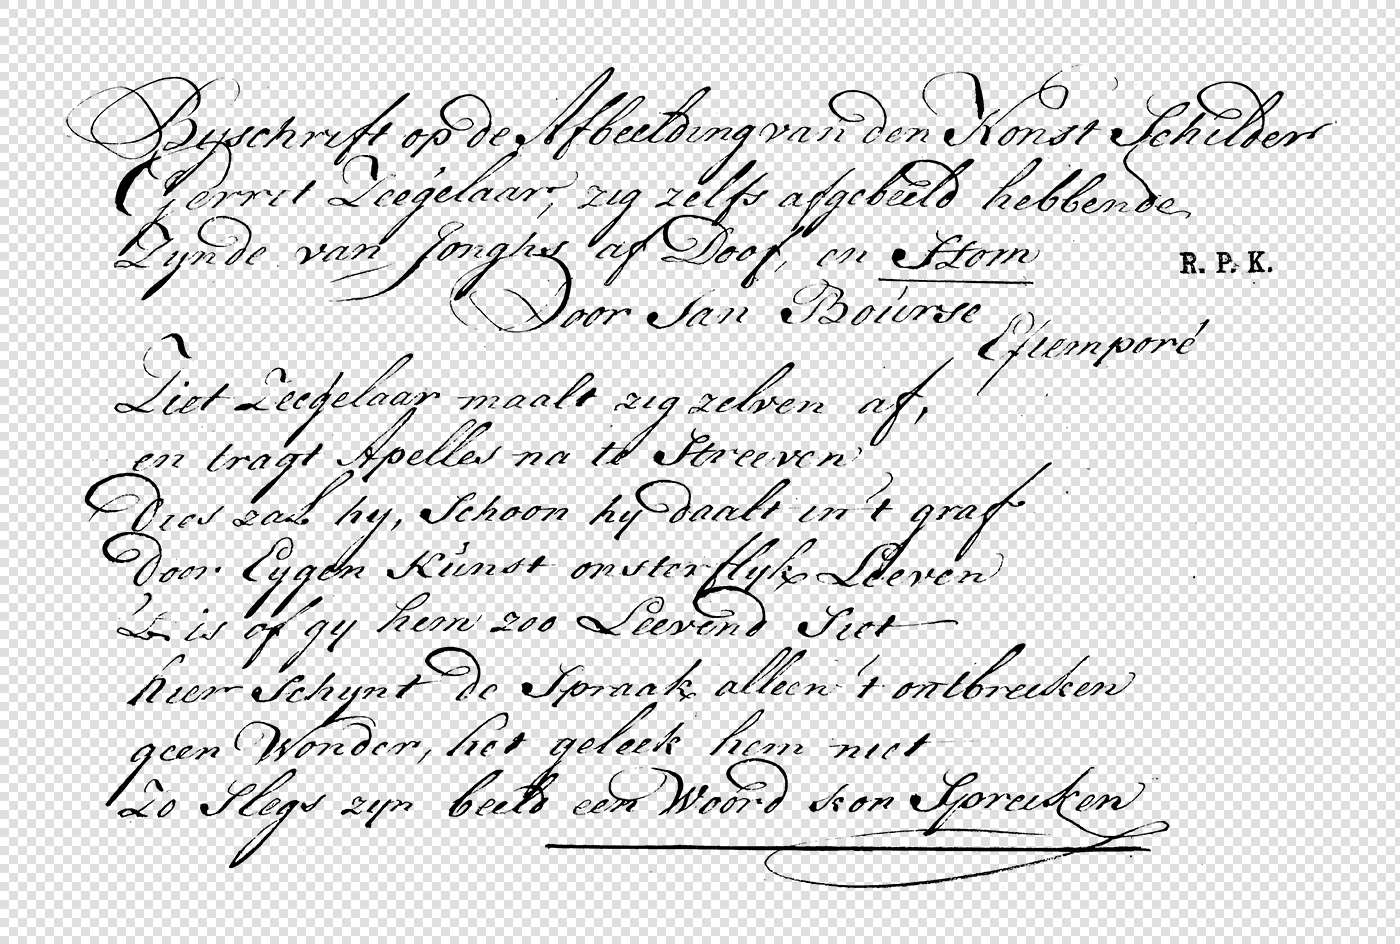 Bijschrift op de Afbeelding van den Konst Schilder
Gerrit Zeegelaar, zig zelfs afgebeeld hebbende
Zynde van Jonghs af Doof, en Stom
R. P. K.
Door Jan Boúrse
Extemporé
Ziet Zeegelaar maalt zig zelven af,
en tragt Apelles na te Streeven
dies zal hy, Schoon hy daalt in 't graf
door Eygen Kúnst onsterflyk Leeven
't is of gy hem zoo Leevend Siet
hier Schynt de Spraak alleen 't ontbreeken
geen Wonder, het geleek hem niet
Zo Slegs zyn beeld een Woord kon Spreeken